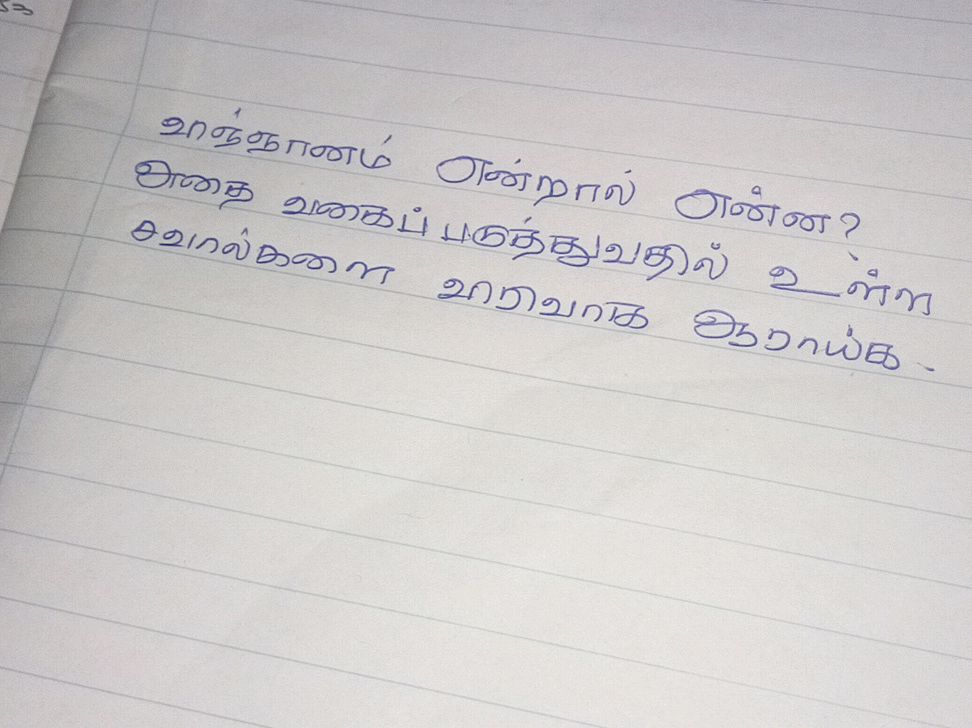 விஞ்ஞானம் என்றால் என்ன?
அதை வகைப்படுத்துவதில் உள்ள
சவால்களை விரிவாக ஆராய்க.